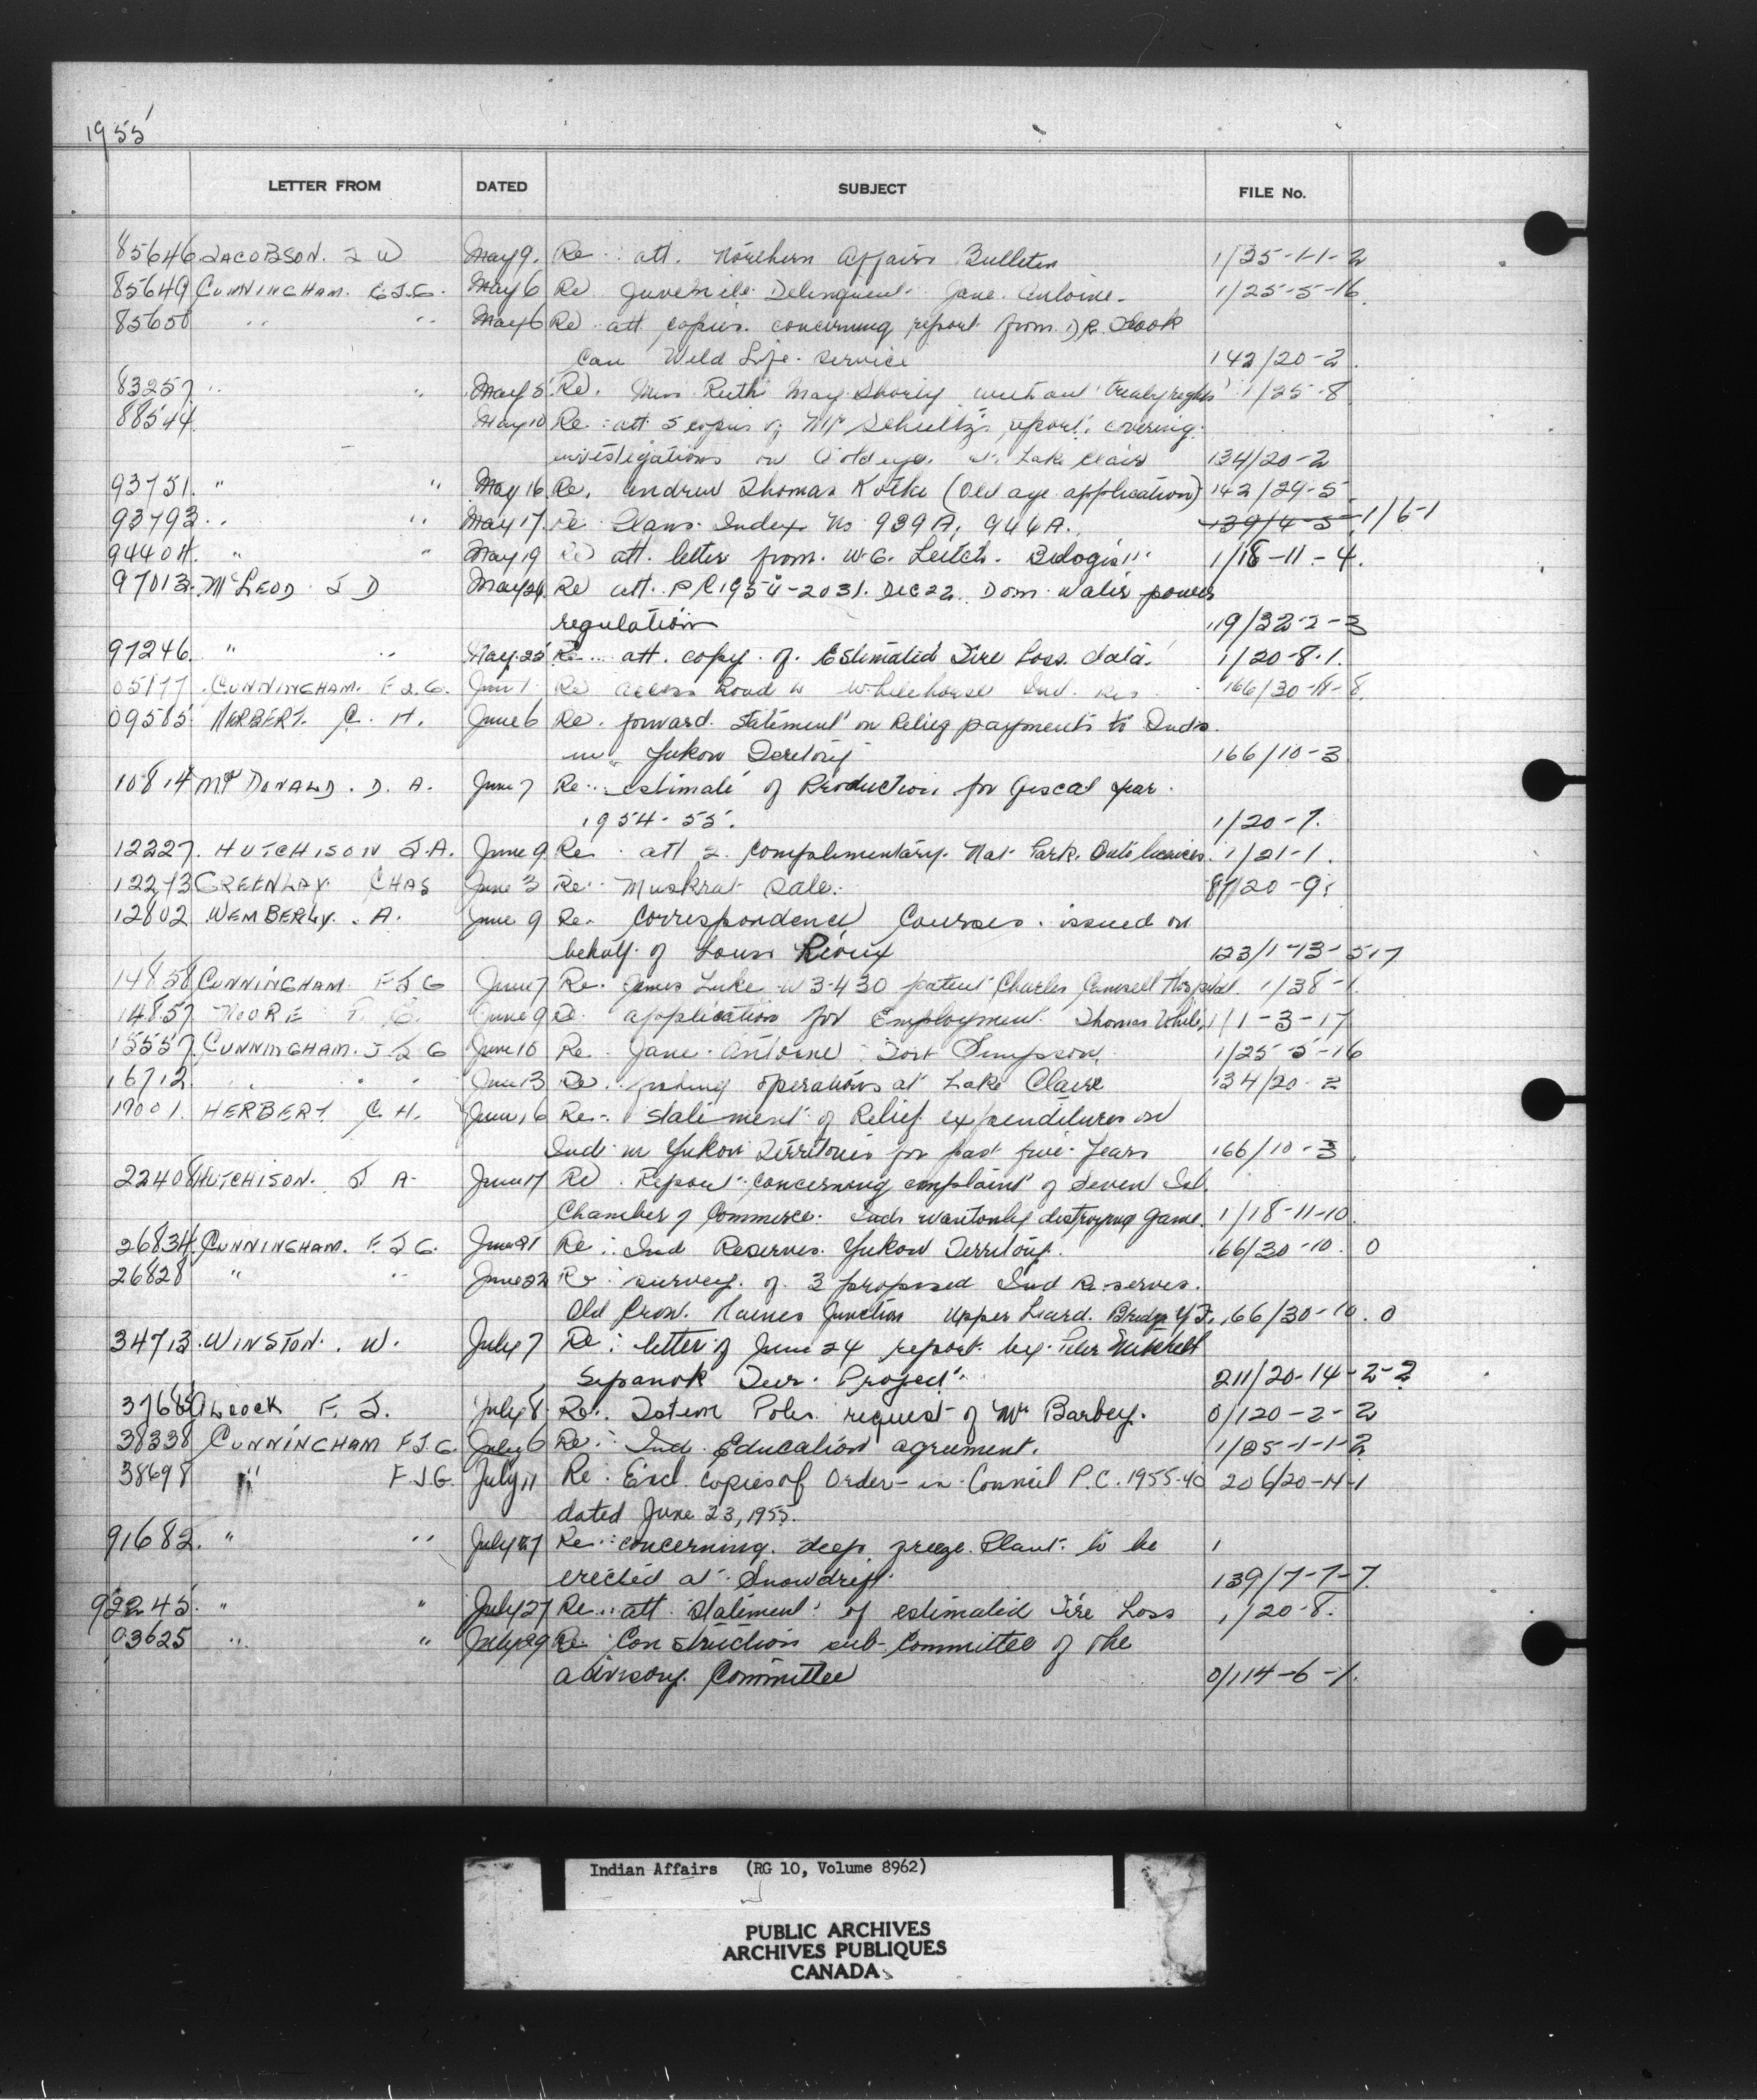 1955
LETTER FROM DATED SUBJECT FILE No.
85646 JACOBSON. J W May 9. Re: att. Northern Affairs Bulletin 1/25-1-1-2
85649 CUNNINGHAM. F.J.G. May 6 Re Juvenile Delinquent Jane Antoine. 1/25-5-16
85650 " " May 6 Re att copies concerning report from D.R. Flook
Can Wild Life Service 142/20-2
83257 " " May 5 Re. Miss Ruth May Shorty without treaty rights 1/25-8
88544 May 10 Re: att 5 copies of Mr Schultz's report, covering
investigations on Goldeye at Lake Clair 134/20-2
93751. " " May 16 Re. Andrew Thomas Kotke (Old age application) 142/29-5
93793 " " May 17. Re Plans Index No 939A, 944A. 139/4-5 1/6-1
94404. " " May 19 Re att. letter from W.G. Leitch. Biologist 1/18-11-4.
97013. McLEOD J D May 26 Re att. P.C. 1954-2031. Dec 22. Dom. Water power
regulation 119/32-2-3
97246. " " May 25 Re att. copy of Estimated Fire Loss data. 1/20-8-1.
05177. CUNNINGHAM. F.J.G. June 1 Re access Road to Whitehorse Ind. Res. 166/30-11-8
09585 HERBERT. C. H. June 6 Re. forward statement on Relief payments to Inds.
in Yukon Territory 166/10-3
10814 McDONALD. D. A. June 7 Re: estimate of Production for fiscal year
1954-55. 1/20-7.
12227. HUTCHISON J.A. June 9 Re att 2 complimentary Nat Park. Auto licences. 1/21-1.
12273 GREENLAY CHAS June 3 Re: Muskrat Sale. 87/20-9
12802 WEMBERLY. A. June 9 Re. Correspondence Courses issued on
behalf of Louis Rioux 123/1-13-5-17
14858 CUNNINGHAM F J G June 7 Re. James Luke W3-430 patient Charles Camsell Hospital. 1/38-1
14857 MOORE June 9 Re. application for Employment Thomas White 1/1-3-17
15557 CUNNINGHAM. F J G June 10 Re Jane Antoine Fort Simpson. 1/25-5-16
16712 " " June 13 Re. fishing operations at Lake Claire 134/20-2
19001. HERBERT C H. June 16 Re: statement of Relief expenditures on
Ind in Yukon Territories for past five years 166/10-3
22408 HUTCHISON. J A June 17 Re. Report concerning complaint of Seven Isl.
Chamber of Commerce. Inds wantonly destroying game. 1/18-11-10
26834 CUNNINGHAM. F.J.G. June 21 Re: Ind Reserves Yukon Territory. 166/30-10. 0
26828 " " June 22 Re: survey of 3 proposed Ind Reserves.
Old Crow. Haines Junction Upper Liard. Bridge Y.T. 166/30-10. 0
34713. WINSTON. W. July 7 Re: letter of June 24 report by Peter
Sipanok Fur Project. 211/20-14-2-2
37685 ALCOCK F. J. July 8 Re: Totem Poles request of Mr Barbey. 0/120-2-2
38338 CUNNINGHAM F.J.G. July 6 Re: Ind. Education agreement. 1/25-1-1-2
38698 " F.J.G. July 11 Re: Encl copies of Order-in-Council P.C. 1955-40 206/20-14-1
dated June 23, 1955.
91682. " " July 27 Re: concerning deep freeze Plant to be 1
erected at Snowdrift. 139/7-7-7.
92245. " " July 27 Re: att statement of estimated Fire Loss 1/20-8.
03625 " " July 29 Re: Construction sub-Committee of the
advisory Committee 0/114-6-1.
Indian Affairs (RG 10, Volume 8962)
PUBLIC ARCHIVES
ARCHIVES PUBLIQUES
CANADA